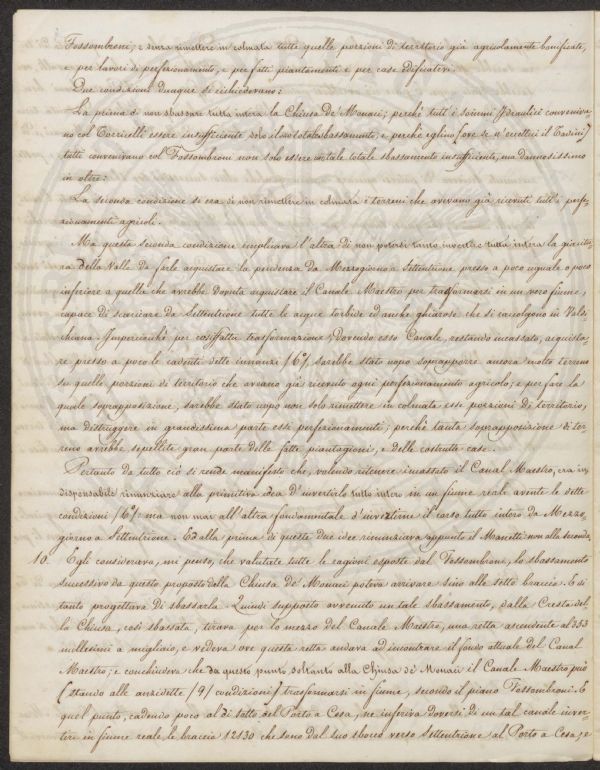 Fossombroni; e senza rimettere in colmata tutte quelle porzioni di territorio già agricolamente bonificate,
e per lavori di perfezionamento, e per fatti piantamenti e per case edificatevi.
Due condizioni dunque si richiedevano:
La prima di non sbassare tutta intera la Chiusa de' Monaci; perchè tutti i sommi Idraulici conveniva-
no col Torricelli essere insufficiente il totale sbassamento; e perchè eglino (ove se n'eccettui il Tavini)
tutti convenivano col Fossombroni non solo essere cotale totale sbassamento insufficiente, ma dannosissimo
in oltre:
La seconda condizione si era di non rimettere in colmata i terreni che avevano già ricevuti tutti i perfe-
zionamenti agricoli.
Ma questa seconda condizione implicava l'altra di non potersi tanto invertire tutta intera la giacitu-
ra della Valle da farle acquistare la pendenza da Mezzogiorno a Settentrione presso a poco uguale o poco
inferiore a quella che avrebbe dovuta acquistare il Canale Maestro per trasformarsi in un vero fiume,
capace di scaricare da Settentrione tutte le acque torbide ed anche ghiarose che si raccolgono in Valdi-
chiana. Imperciocchè per cosiffatta trasformazione, dovendo esso Canale, restando incassato, acquista-
re presso a poco le cadenti dette innanzi (6), sarebbe stato uopo soprapporre ancora molto terreno
su quelle porzioni di territorio che aveano già ricevuto ogni perfezionamento agricolo; e per fare la
quale soprapposizione, sarebbe stato uopo non solo rimettere in colmata esse porzioni di territorio,
ma distruggere in grandissima parte essi perfezionamenti; perchè tanta soprapposizione di ter-
reno avrebbe sepellite gran parte delle fatte piantagioni, e delle costrutte case.
Pertanto da tutto ciò si rende manifesto che, volendo ritenere incassato il Canal Maestro, era in-
dispensabile rinunziare alla primitiva idea d'invertirlo tutto intero in un fiume reale avente le dette
condizioni (6); ma non mai all'altra fondamentale d'invertirne il corso tutto intero da Mezzo-
giorno a Settentrione. Ed alla prima di queste due idee rinunziava appunto il Manetti non alla seconda.
10. Egli considerava, mi penso, che valutate tutte le ragioni esposte dal Fossombroni, lo sbassamento
successivo da questo proposto della Chiusa de' Monaci poteva arrivare sino alle sette braccia. E di
tanto progettava di sbassarla. Quindi supposto avvenuto un tale sbassamento, dalla Cresta del-
la Chiusa, così sbassata, tirava per lo mezzo del Canale Maestro, una retta ascendente al 353
millesimi a migliaio, e vedeva ove questa retta andava ad incontrare il fondo attuale del Canal
Maestro; e conchiudeva che da questo punto soltanto alla Chiusa de' Monaci il Canale Maestro può
(stando alle anzidette (9) condizioni) trasformarsi in fiume, secondo il piano Fossombroni. E
quel punto, cadendo poco al di sotto del Porto a Cesa, ne inferiva doversi di un tal canale inver-
tere in fiume reale le braccia 12130 che sono dal suo sbocco verso Settentrione al Porto a Cesa; e